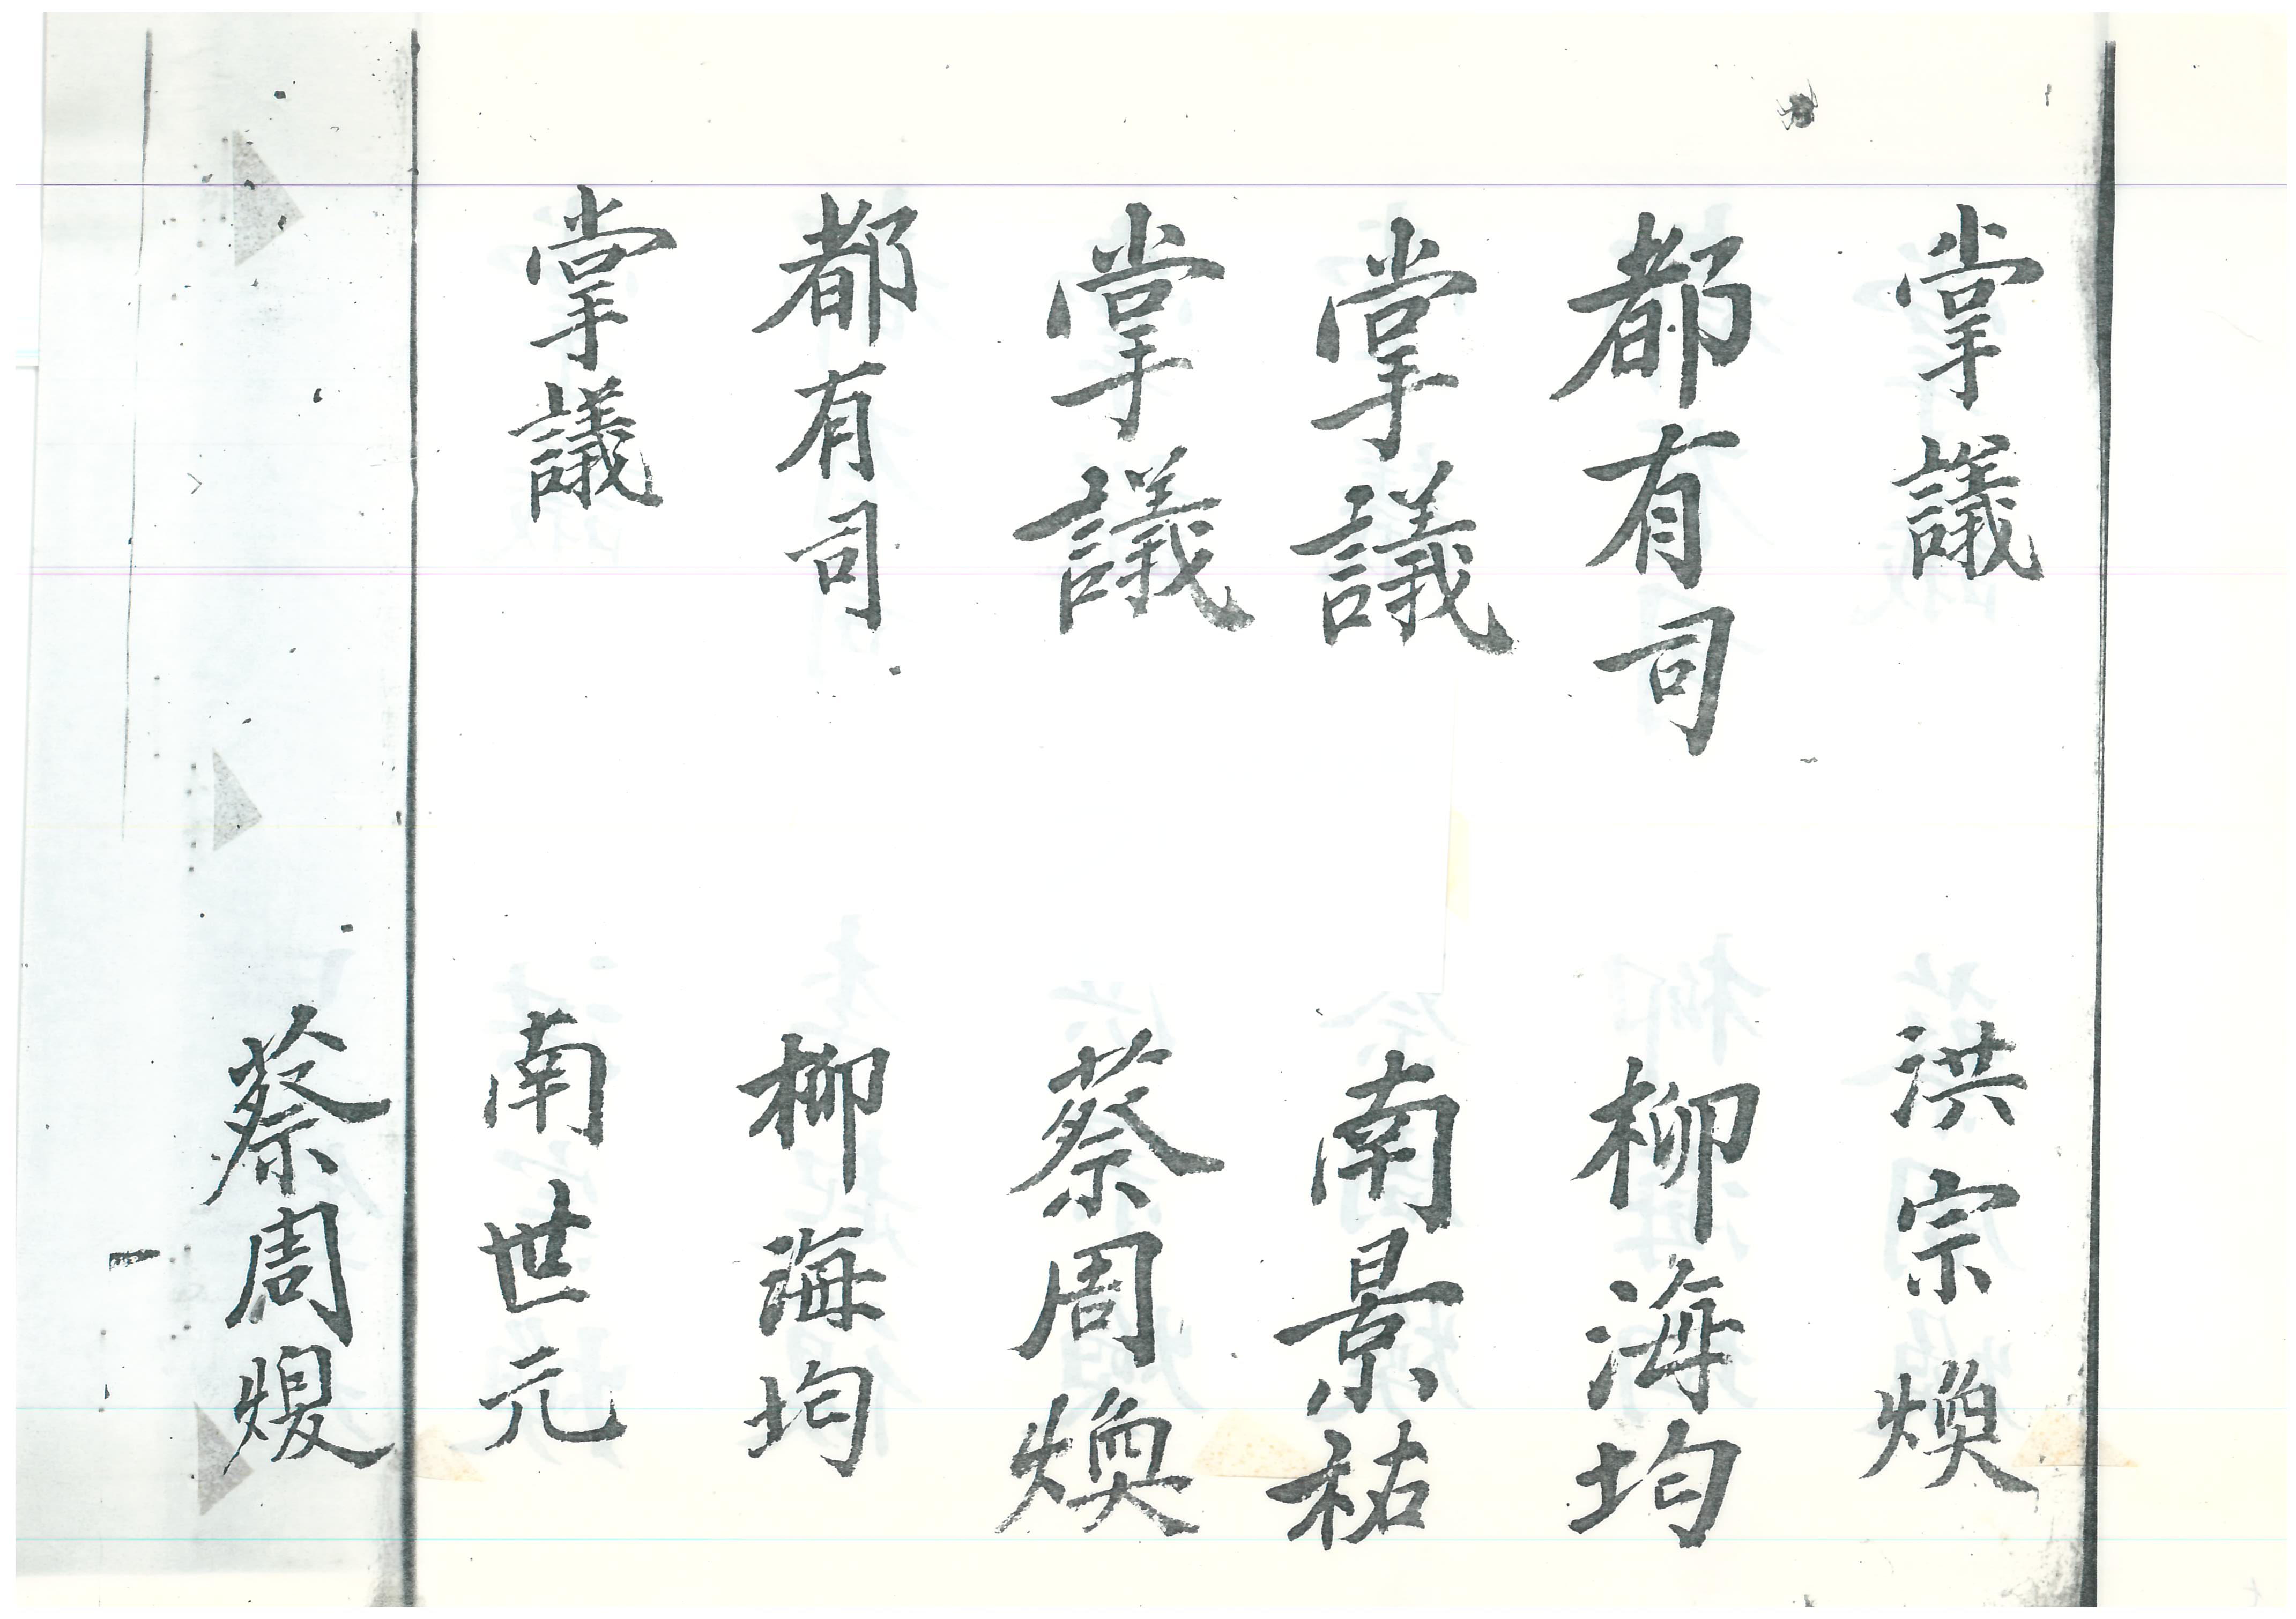 掌議 洪宗煥
都有司 柳海均
掌議 南景祐
掌議 蔡周煥
都有司 柳海均
掌議 南世元
蔡周煥